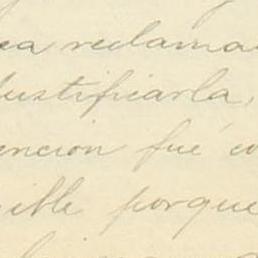 ea reclama
justificarla,
ención fué co
ible porque